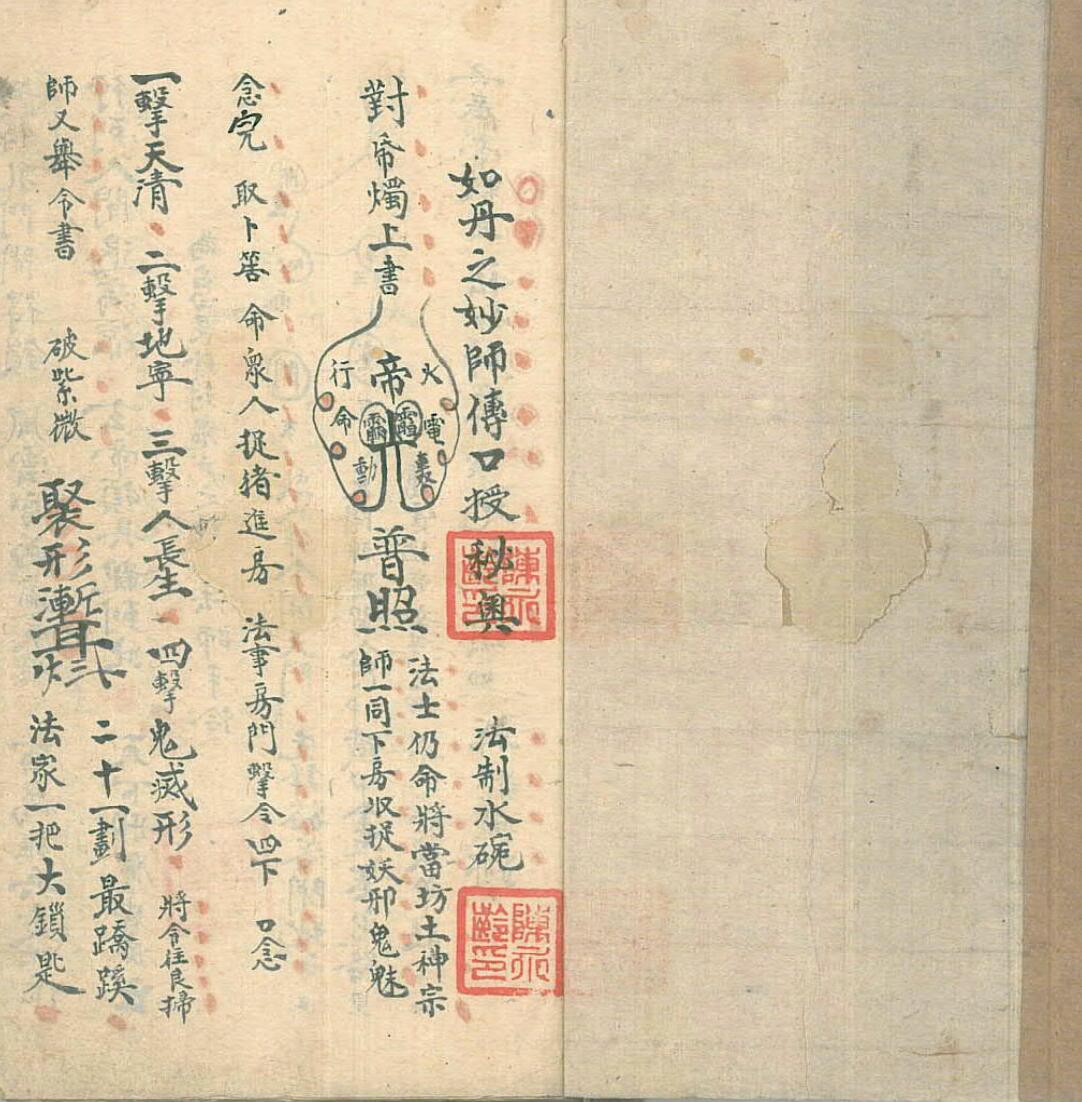 如丹之妙師傳口授秘奧 法制水碗
陳
齡印
陳
齡印
對帝燭上書
火電
帝
行命動
普照
法士仍命將當坊土神宗
師一同下房收捉妖邪鬼魅
念完 取卜筶 命眾人捉猪進房 法事房門擊令四下 口念
一擊天清 二擊地寧 三擊人長生 四擊鬼滅形
將令往良掃
師又舉令書 破紫微
二十一劃最蹺蹊
聚形 法家一把大鎖匙